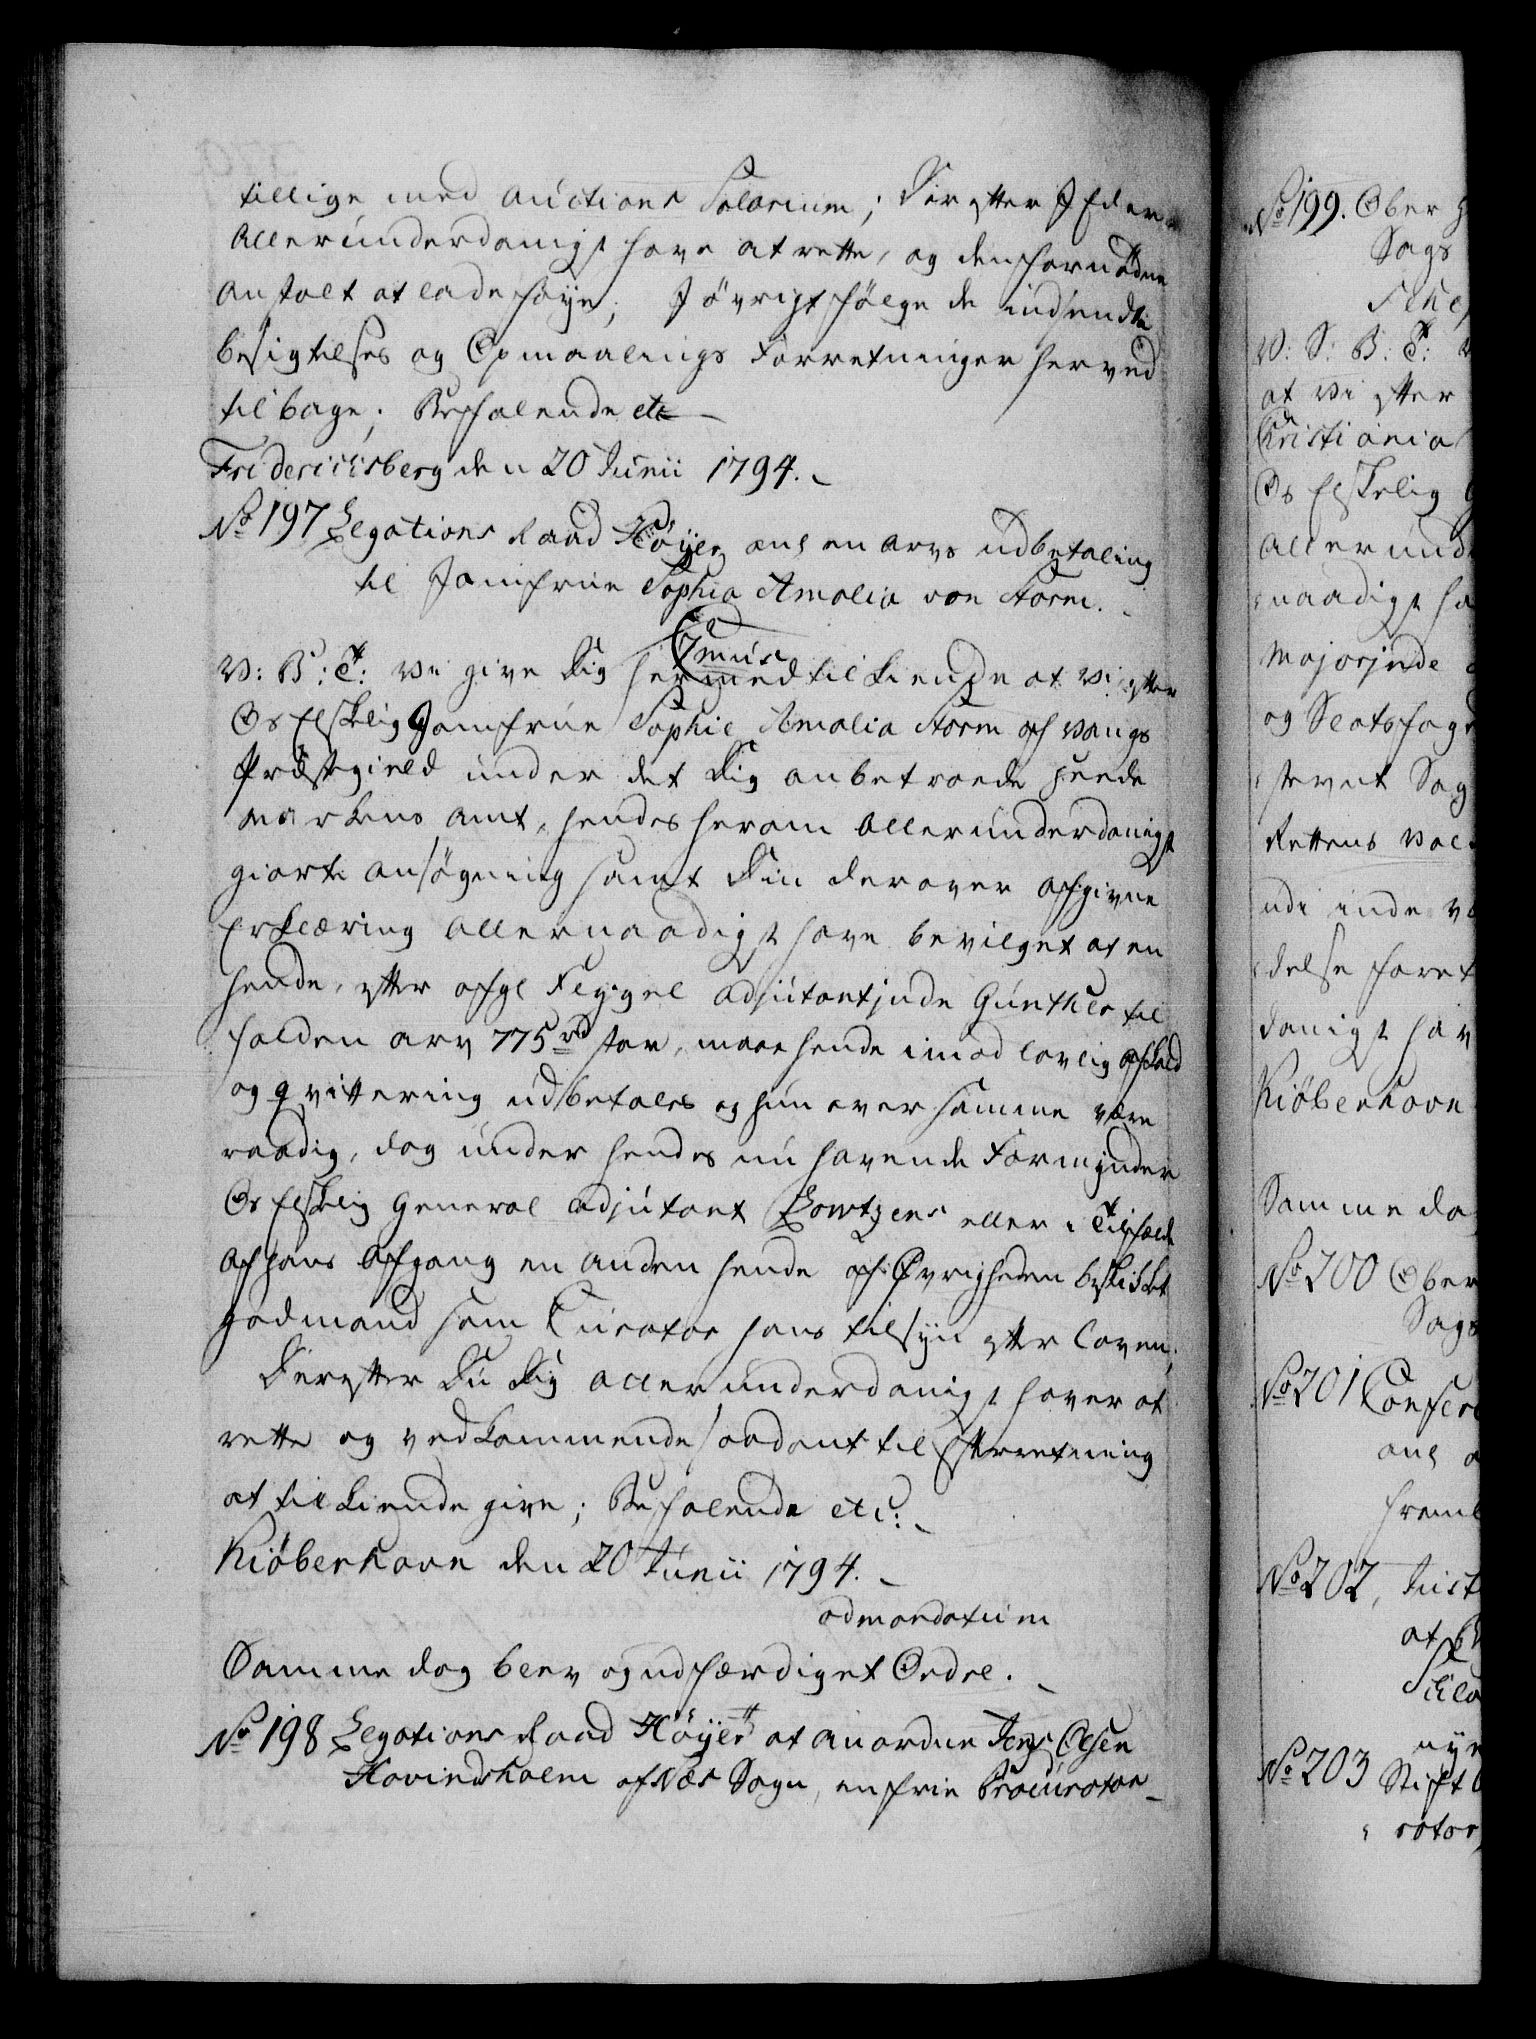 tillige med Auctions Salarium; Derefter I Eder
Allerunderdanigst have at rette, og den fornødne
Anstalt at lade føye; I øvrigt følge de indsendte
besigtelses og Opmaalings Forretninger herved
tilbage; Befalende etc
Fridericksberg den 20 Junii 1794.
No 197 Legations Raad Høyer anl en Arvs udbetaling
til Jomfrue Sophia Amalia von Storm.
Cmus
V: B: T: Vi give Dig hermed tilkiende at vi efter
Os Elskelig Jomfrue Sophie Amalia Storm af Vangs
Præstegield under det Dig anbetroede Hede
markens Amt, hendes herom Allerunderdanigst
giorte ansøgning samt Din derover afgivne
Erklæring Allernaadigst have bevilget at en
hende, efter afgl Fløygel adjutantjnde Günther til
falden arv 775 rd stor, maae hende imod lovlig afkald
og qvittering udbetales og hun over samme være
raadig, dog under hendes nu havende Formynder
Os Elskelig General Adjutant Lowtzens eller i Tilfælde
af hans Afgang en anden hende af Øvrigheden beskikket
godmand som Curator hans tilsyn efter Loven;
Derefter Du Dig allerunderdanigst haver at
rette og vedkommende saadant til Efterretning
at tilkiende give; Befalende etc:
Kiøbenhavn den 20 Junii 1794.
ad mandatum
Samme dag blev og udfærdiget Ordre.
No 198 Legations Raad Høyer at anordne Jens Olsen
Hovindsholm af Næs Sogn, en frie Procurator
No 199. Ober
Sags
V: S: B: T:
at vi efter
Christiania
Os Elskelig
Allerund
naadigst ha
Majorjnde
og Slotsfog
stevnt Sag
Rettens
udi inde
delse foret
danigst hav
Kiøbenhavn
Samme da
No 200 Ober
Sags
No 201 Confere
anl
freml
No 202, Just
at
No 203 Stift
rator